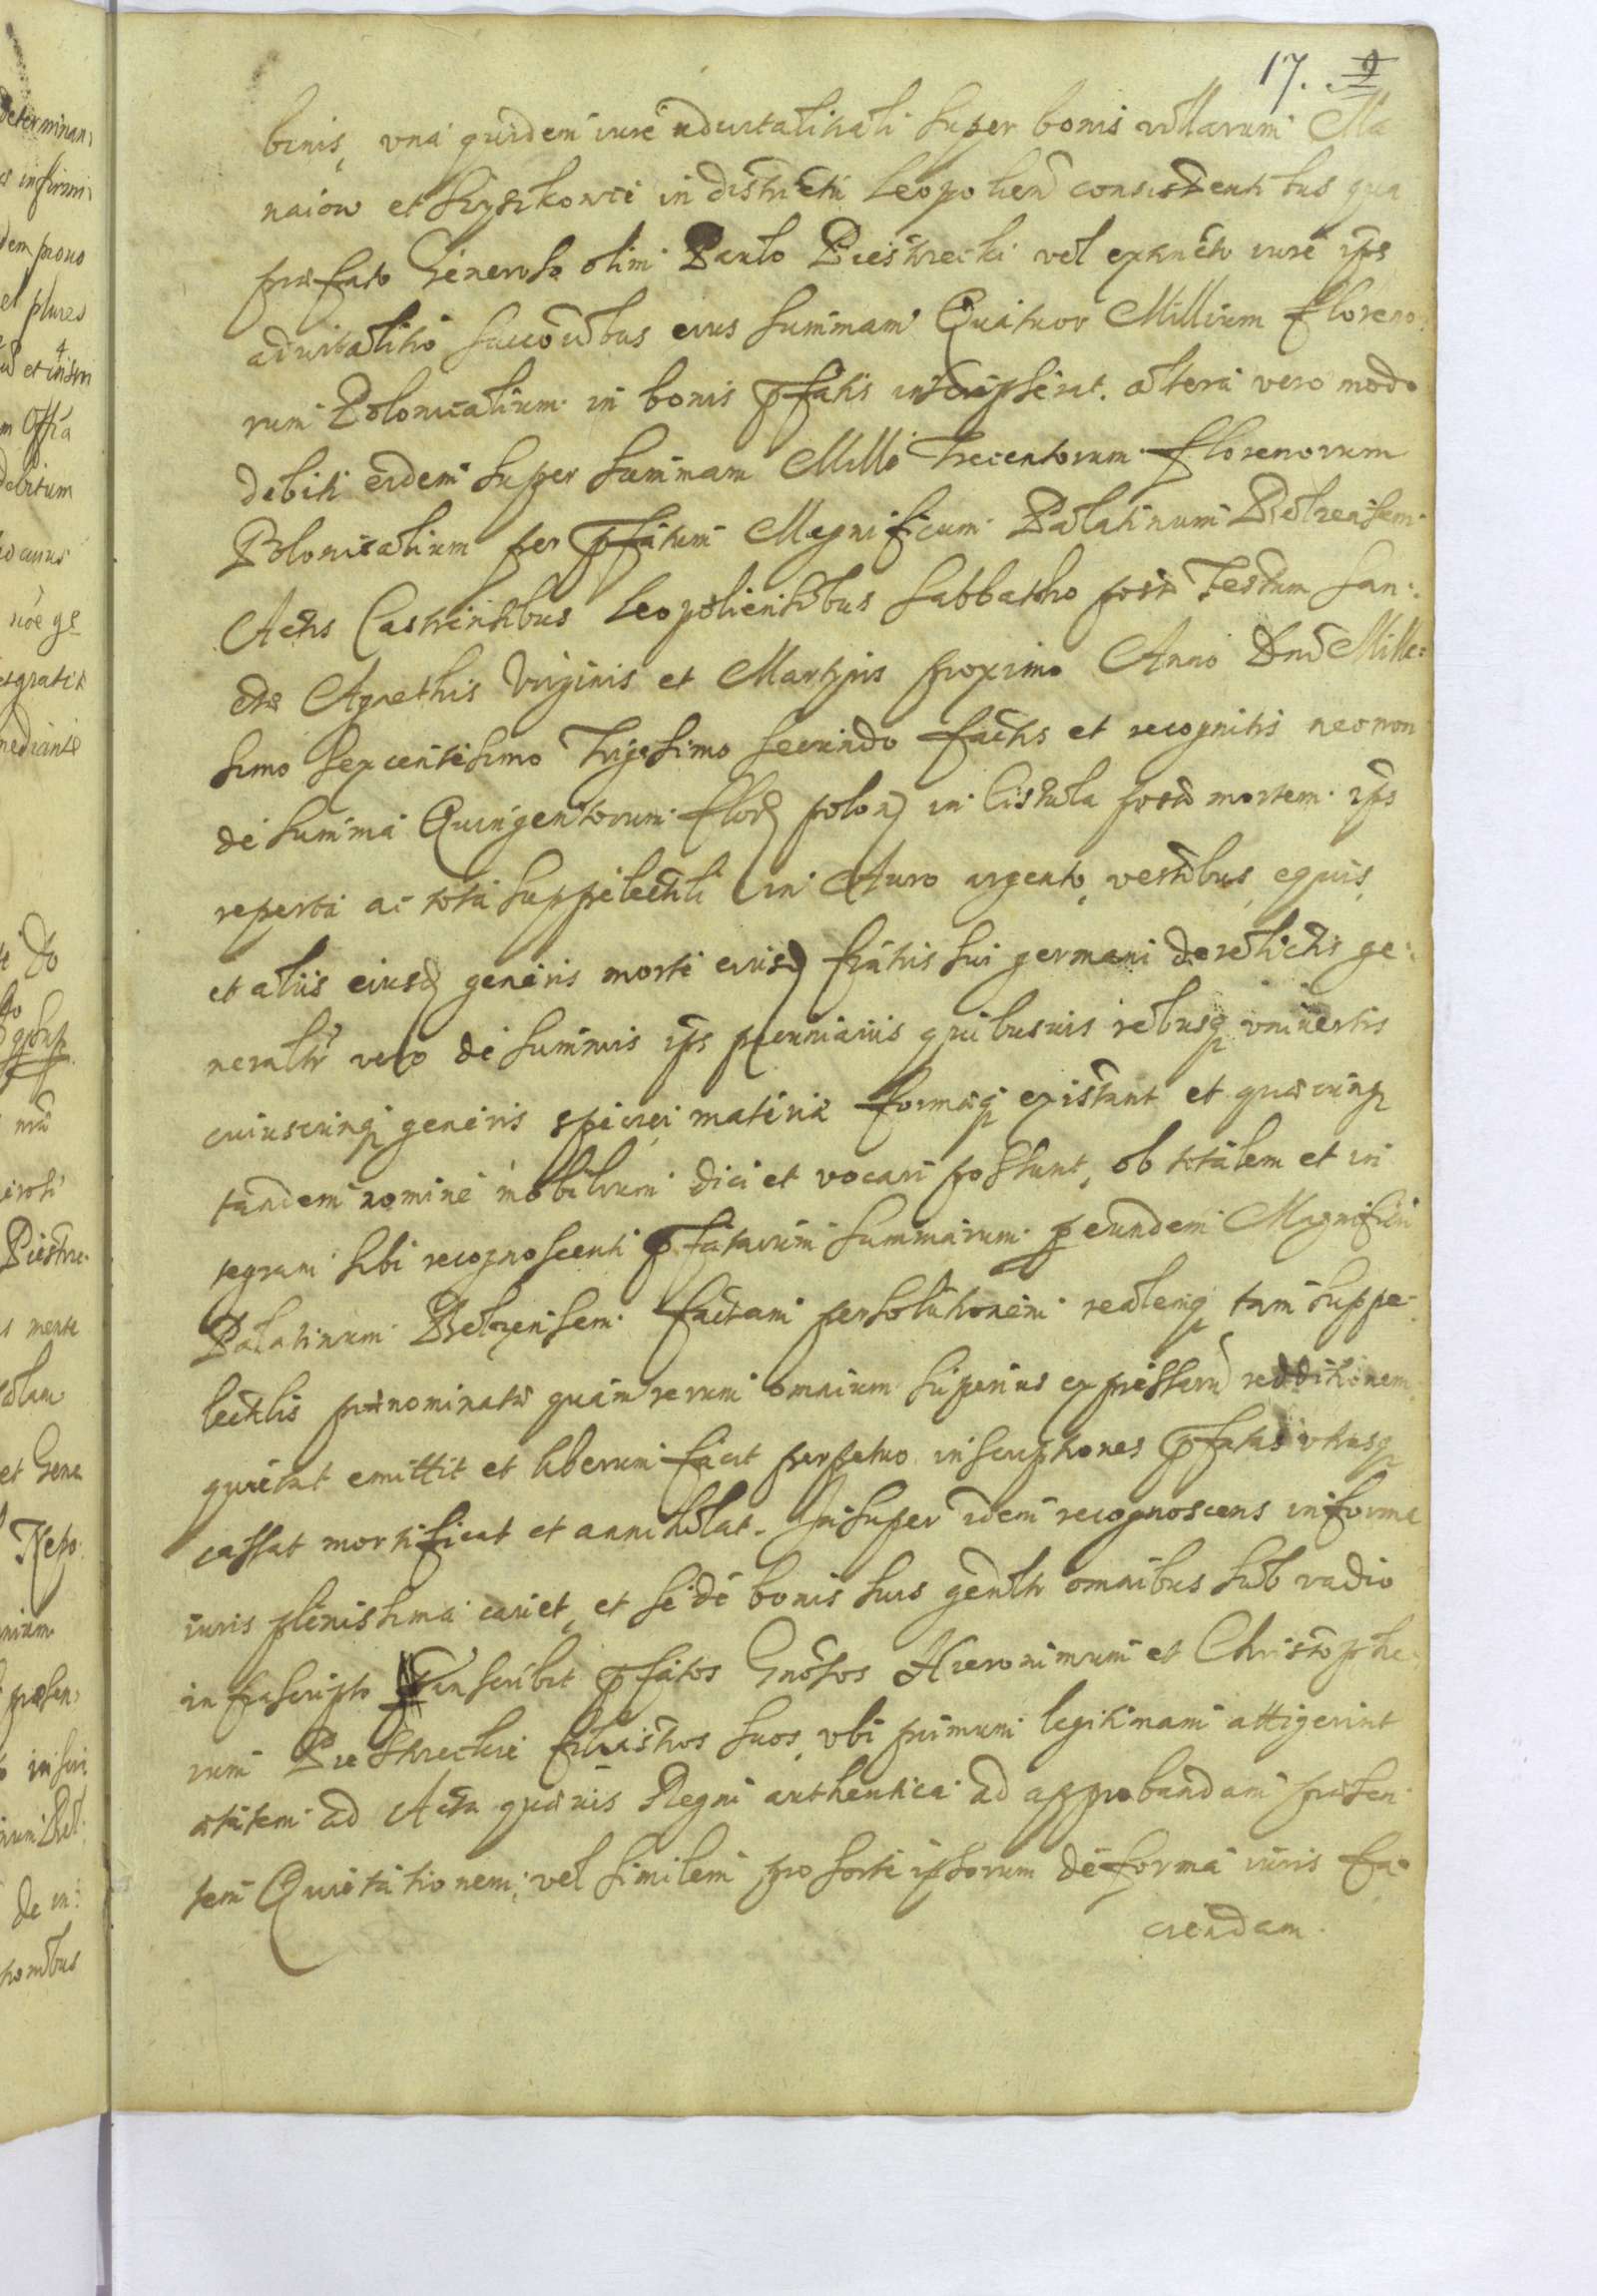 17. 9
binis, una quidem iure aduitalitali super bonis villarum Ma
naiow et Hryszkowce in districtu Leopolien consistentibus qua
præfato Generoso olim Paulo Piestrecki vel extincto iure ips
aduitalitio succoribus eius summam Quatuor Millium floreno
rum Polonicalium in bonis pfatis inscripserat. altera vero modo
debiti eidem super summam Mille Trecentorum florenorum
Polonicalium per pfatum Magnificum Palatinum Belzensem
Actis Castrensibus Leopoliensibus Sabbatho post Festum San:
ctæ Agathis Virginis et Martyris proximo Anno Dnī Mille=
simo Sexcentesimo Trigesimo secundo factis et recognitis necnon
de summa Quingentorum flor polon in Cistula post mortem ips
reperta ac tota suppelectili in Auro argento, vestibus, equis,
et aliis eiusd generis morte eiusd fratris sui germani derelictis ge:
neraltr vero de summis ips pecuniariis quibusuis rebusq universis
cuiuscunq generis speciei materiæ formæq existant et quæcunq
tandem nomine mobilium dici et vocari possunt, ob totalem et in
tegram sibi recognoscenti pfatarum summarum p eundem Magnificum
Palatinum Belzensem factam persolutionem realemq tam suppe:
lectilis prænominatæ quam rerum omnium superius expressaru redditionem
quietat emittit et liberum facit perpetuo inscriptiones pfatas utrasq
cassat mortificat et annihilat. Insuper idem recognoscens in forma
iuris plenissima cauet, et se de bonis suis genltr omnibus sub vadio
infrascripto inscribit pfatos Gnosos Hieronimum et Christophe:
rum Piestreckie filiastros suos, ubi primum legitimam attigerint
ætatem ad Acta quæuis Regni authentica ad approbandam præsen:
tem Quietationem, vel similem pro sorte ipsorum de forma iuris fa:
ciendam.